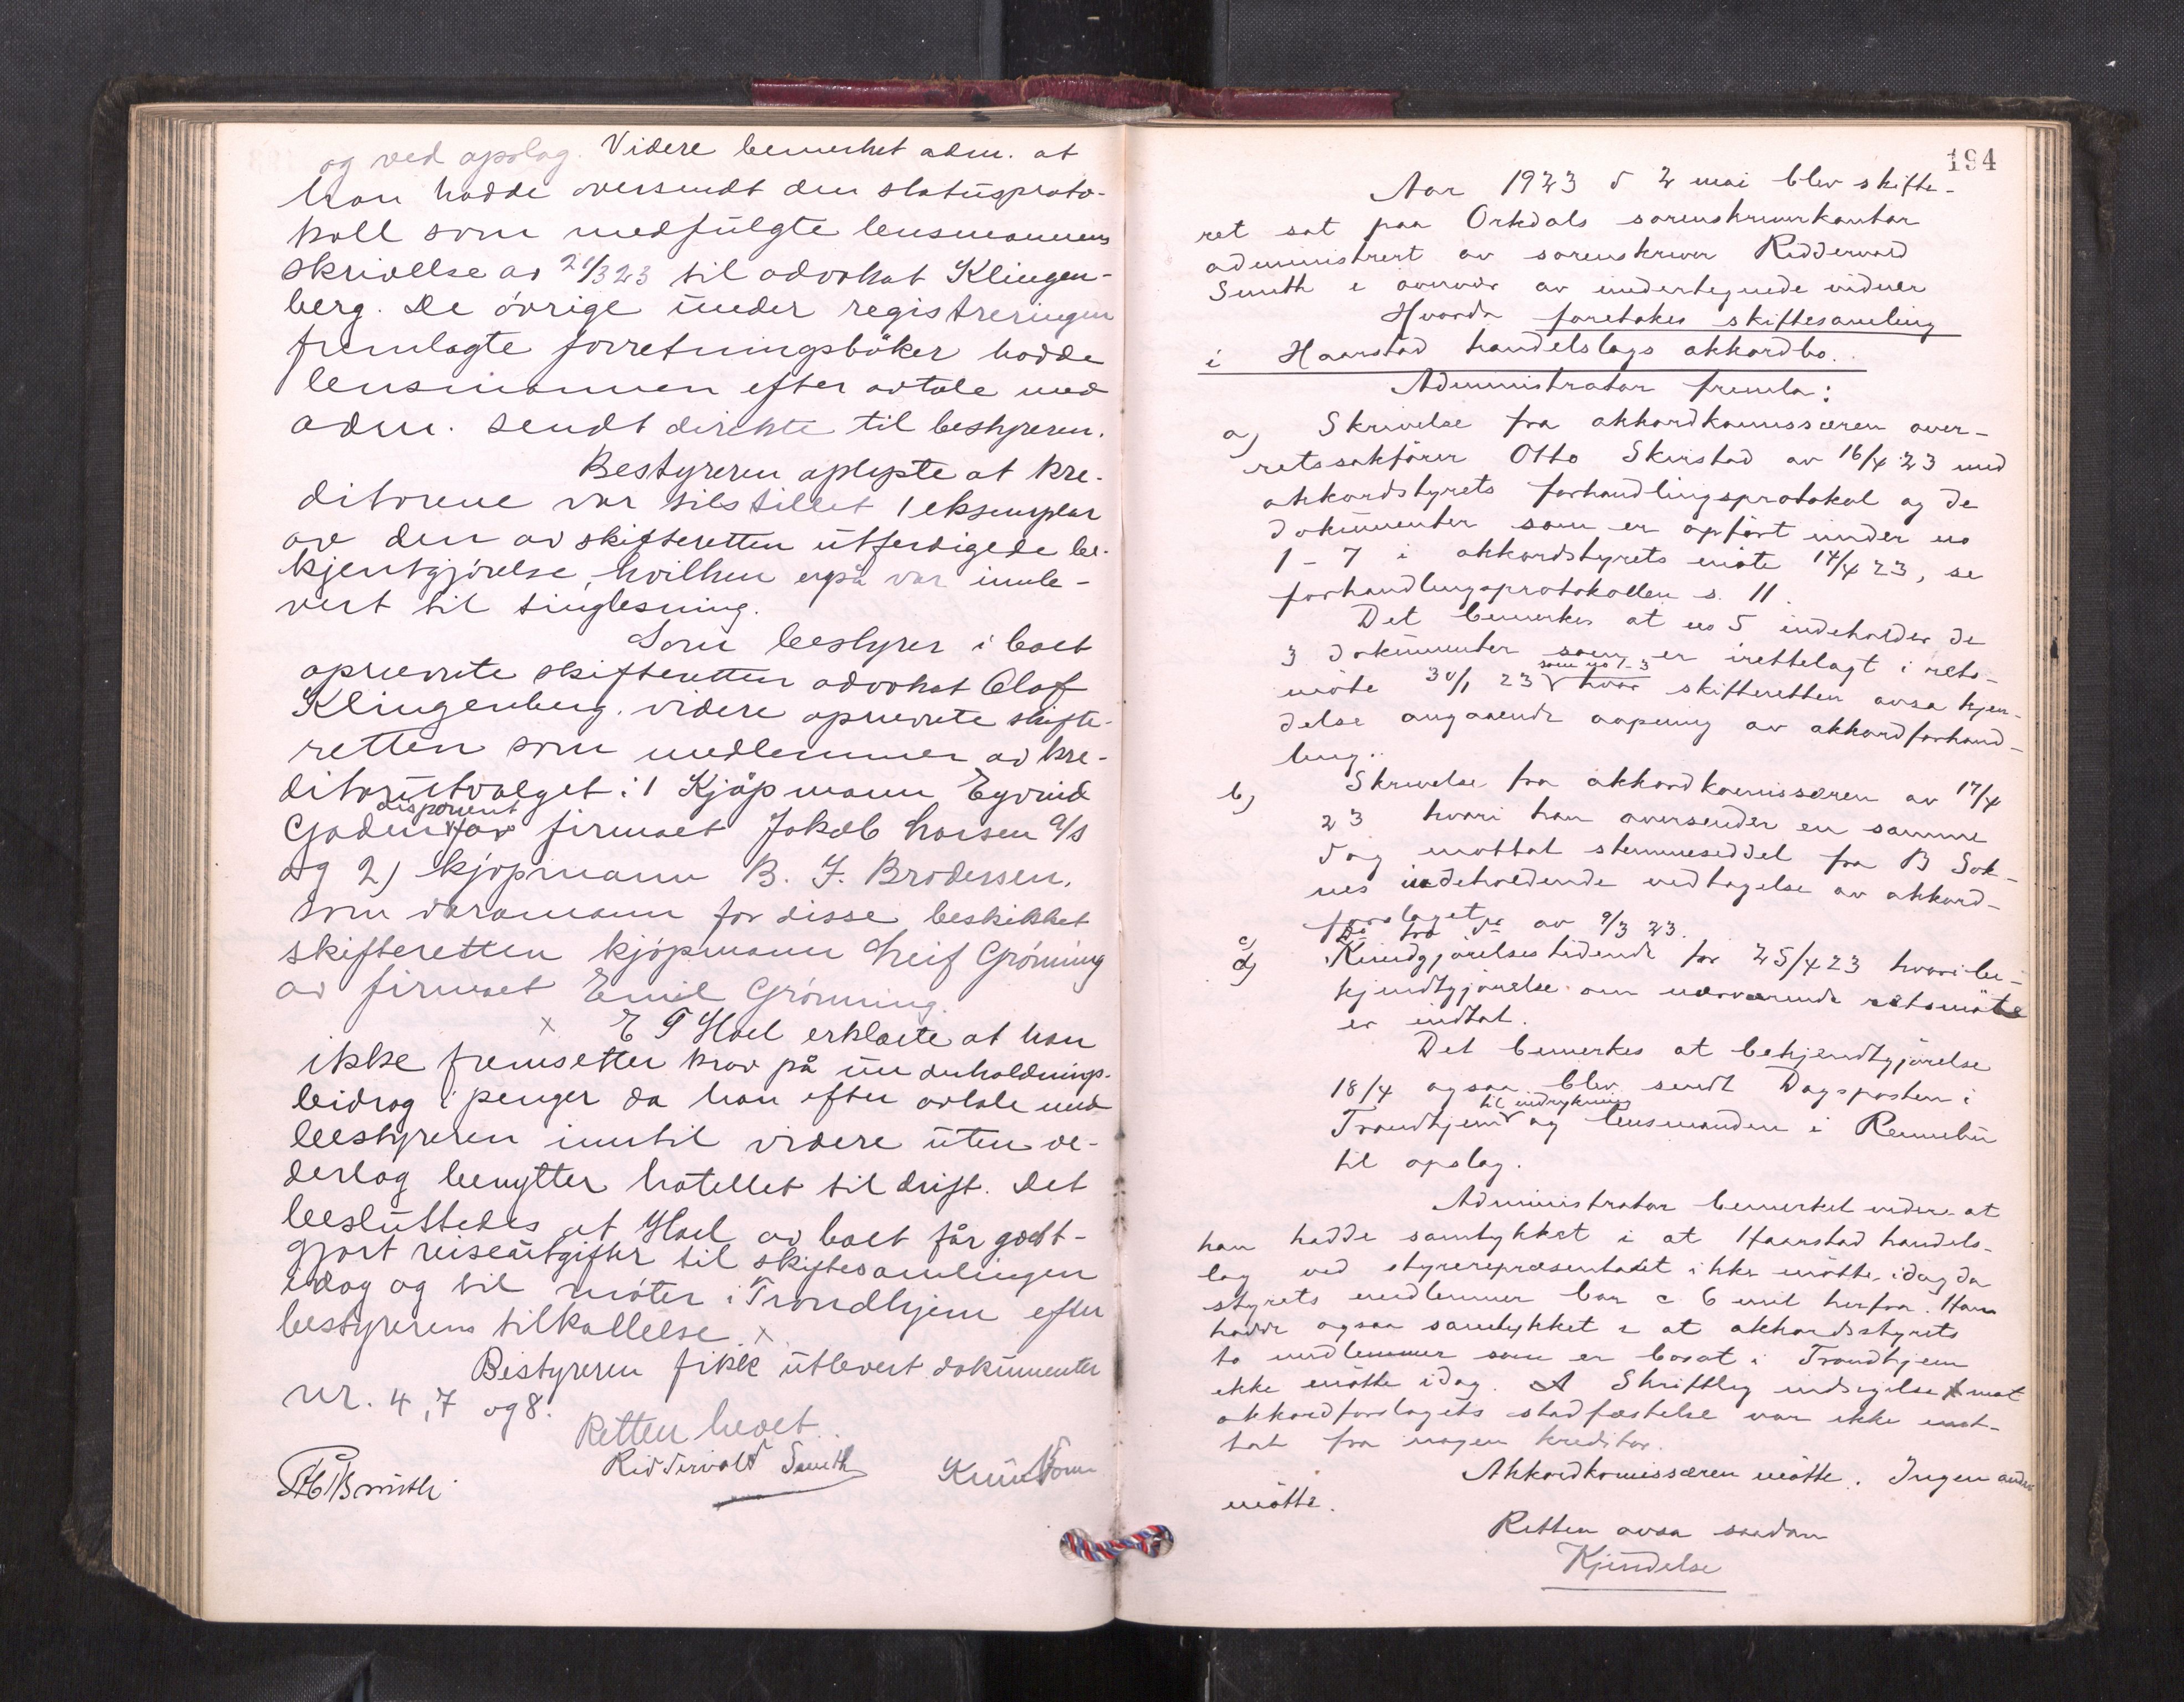 og ved opslag. Videre bemerket adm. at
han hadde oversendt den statusproto-
koll som medfulgte lensmannens
skrivelse av 21/3 23 til advokat Klingen-
berg. De övrige under registreringen
fremlagte forretningsböker hadde
lensmannen efter avtale med
adm. sendt direkte til bestyreren.
Bestyreren oplyste at kre-
ditorene var tilstillet 1 eksemplar
av den av skifteretten utferdigede be-
kjentgjörelse, hvilken også var innle-
vert til tinglesning.
Som bestyrer i boet
opnevnte skifteretten advokat Olaf
Klingenberg. videre opnevnte skifte-
retten som medlemmer av kre-
ditorutvalget: 1 Kjöpmann Eyvind
disponent
for firmaet Jakob Larsen A/S
og 2) kjöpmann B. J. Brodersen.
Som varamann for disse beskikket
skifteretten kjöpmann Leif Grönning
av firmaet Emil Grönning.
x E T Hoel erklærte at han
ikke fremsetter krav på underholdnings-
bidrag i penger da han efter avtale med
bestyreren inntil videre uten ve-
derlag benytter hotellet til drift. Det
besluttedes at Hoel av boet får godt-
gjort reiseutgifter til skiftesamlingen
idag og til möter i Trondhjem efter
bestyrerens tilkallelse x.
Bestyreren fikk utlevert dokumenter
nr. 4, 7 og 8.
Retten hevet.
Riddervold Smith
194
Aar 1923 d 2 mai blev skifte-
ret sat paa Orkdals sorenskriverkontor
administrert av sorenskriver Riddervold
Smith i overvær av undertegnede vidner
Hvorda foretokes skiftesamling
i Haarstad handelslags akkordbo.
Administrator fremla:
a) Skrivelse fra akkordkommissæren over-
retssakförer Otto Skirstad av 16/4 23 med
akkordstyrets forhandlingsprotokol og de
dokumenter som er opfört under no
1 - 7 i akkordstyrets möte 14/4 23, se
forhandlingsprotokollen s. 11.
Det bemerkes at no 5 indeholder de
3 dokumenter som er irettelagt i rets-
som no 1-3
möte 30/1 23 hvor skifteretten avsa kjen-
delse angaaende aapning av akkordforhand-
ling.
b) Skrivelse fra akkordkomissæren av 17/4
23 hvori han oversender en samme
dag mottat stemmeseddel fra B Sok-
nes indeholdende vedtagelse av akkord-
forslaget
c) av 9/3 23.
d) Kundgjörelsestidende for 25/4 23 hvori be-
kjendtgjörelse om nærværende retsmöte
er indtat.
Det bemerkes at bekjendtgjörelse
18/4 ogsaa blev sendt Dagsposten i
til indrykning
Trondhjem og lensmanden i Rennebu
til opslag.
Administrator bemerket videre at
han hadde samtykket i at Haarstad handels-
lag ved styrerepræsentant ikke mötte idag da
styrets medlemmer bor c 6 mil herfra. Han
hadde ogsaa samtykket i at akkordstyrets
to medlemmer som er bosat i Trondhjem
ikke mötte idag. Skriftlig indsigelse mot
akkordforslagets stadfæstelse var ikke mot-
tat fra nogen kreditor.
Akkordkomissæren mötte. Ingen andre
mötte.
Retten avsa saadan
Kjendelse